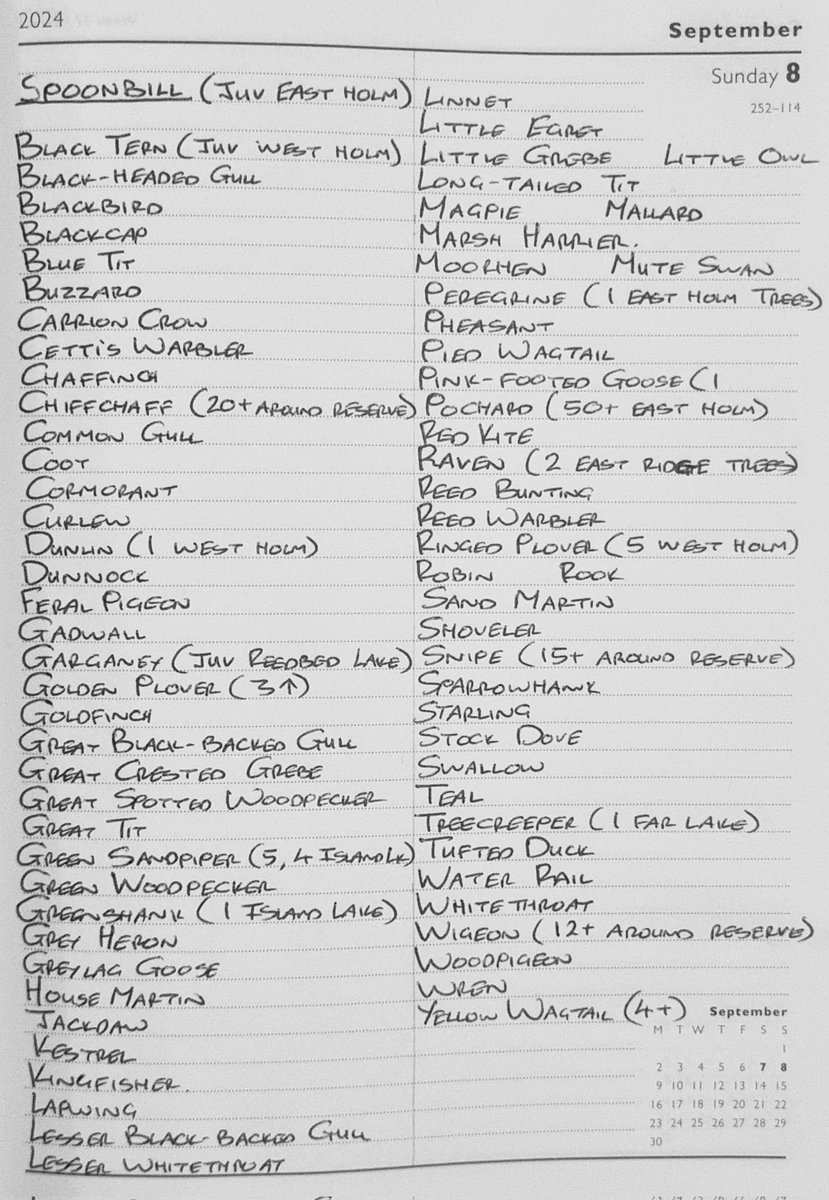 2024
September
Sunday 8
252–114
SPOONBILL (JUV EAST HOLM)
BLACK TERN (JUV WEST HOLM)
BLACK-HEADED GULL
BLACKBIRD
BLACKCAP
BLUE TIT
BUZZARD
CARRION CROW
CETTI'S WARBLER
CHAFFINCH
CHIFFCHAFF (20+ AROUND RESERVE)
COMMON GULL
COOT
CORMORANT
CURLEW
DUNLIN (1 WEST HOLM)
DUNNOCK
FERAL PIGEON
GADWALL
GARGANEY (JUV REEDBED LAKE)
GOLDEN PLOVER (3↑)
GOLDFINCH
GREAT BLACK-BACKED GULL
GREAT CRESTED GREBE
GREAT SPOTTED WOODPECKER
GREAT TIT
GREEN SANDPIPER (5, 4 ISLAND LK)
GREEN WOODPECKER
GREENSHANK (1 ISLAND LAKE)
GREY HERON
GREYLAG GOOSE
HOUSE MARTIN
JACKDAW
KESTREL
KINGFISHER.
LAPWING
LESSER BLACK-BACKED GULL
LESSER WHITETHROAT
LINNET
LITTLE EGRET
LITTLE GREBE LITTLE OWL
LONG-TAILED TIT
MAGPIE MALLARD
MARSH HARRIER.
MOORHEN MUTE SWAN
PEREGRINE (1 EAST HOLM TREES)
PHEASANT
PIED WAGTAIL
PINK-FOOTED GOOSE (1
POCHARD (50+ EAST HOLM)
RED KITE
RAVEN (2 EAST RIDGE TREES)
REED BUNTING
REED WARBLER
RINGED PLOVER (5 WEST HOLM)
ROBIN ROOK
SAND MARTIN
SHOVELER
SNIPE (15+ AROUND RESERVE)
SPARROWHAWK
STARLING
STOCK DOVE
SWALLOW
TEAL
TREECREEPER (1 FAR LAKE)
TUFTED DUCK
WATER RAIL
WHITETHROAT
WIGEON (12+ AROUND RESERVE)
WOODPIGEON
WREN
YELLOW WAGTAIL (4+)
September
M T W T F S S
1
2 3 4 5 6 7 8
9 10 11 12 13 14 15
16 17 18 19 20 21 22
23 24 25 26 27 28 29
30